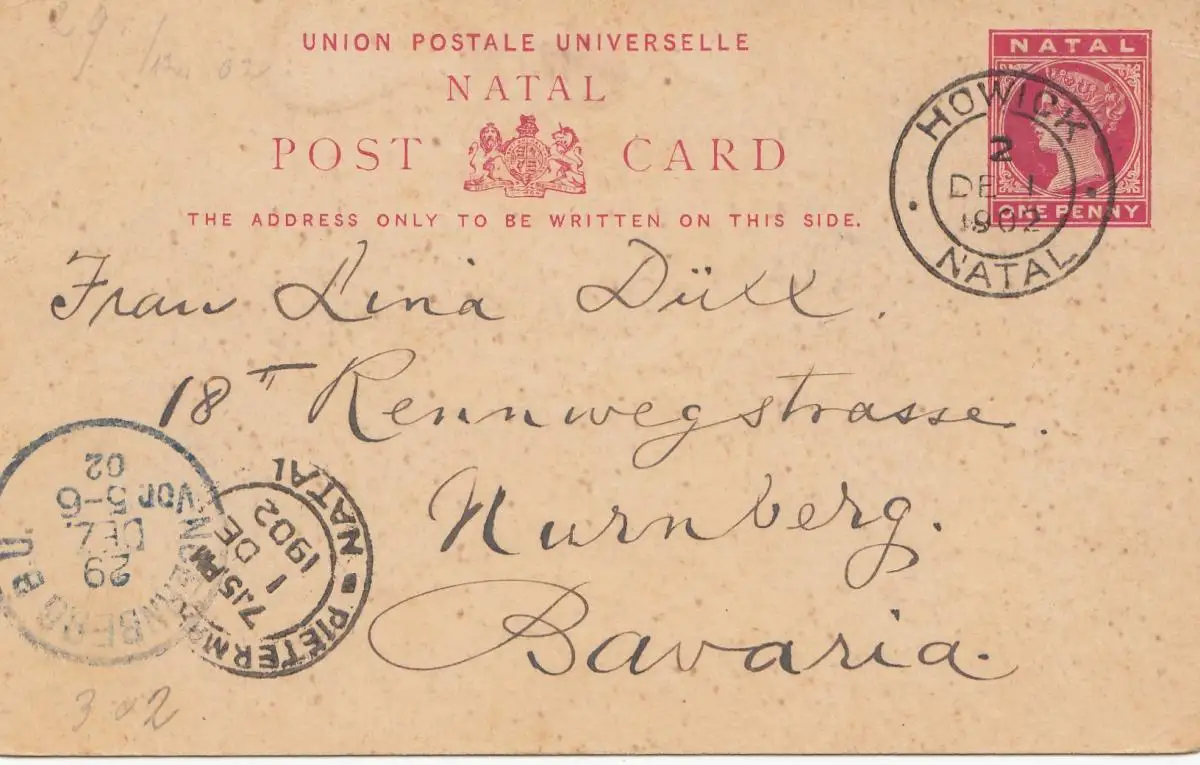 29/12 02
UNION POSTALE UNIVERSELLE
NATAL
POST CARD
THE ADDRESS ONLY TO BE WRITTEN ON THIS SIDE.
NATAL
ONE PENNY
HOWICK
2
DE 1
1902
NATAL
Frau Lina Düll.
18 II Rennwegstrasse.
Nurnberg.
Bavaria.
PIETERMARITZBURG NATAL
7.15 PM
1 DE
1902
NUERNBERG B.U.
29
DEZ.
VOR 5-6
02